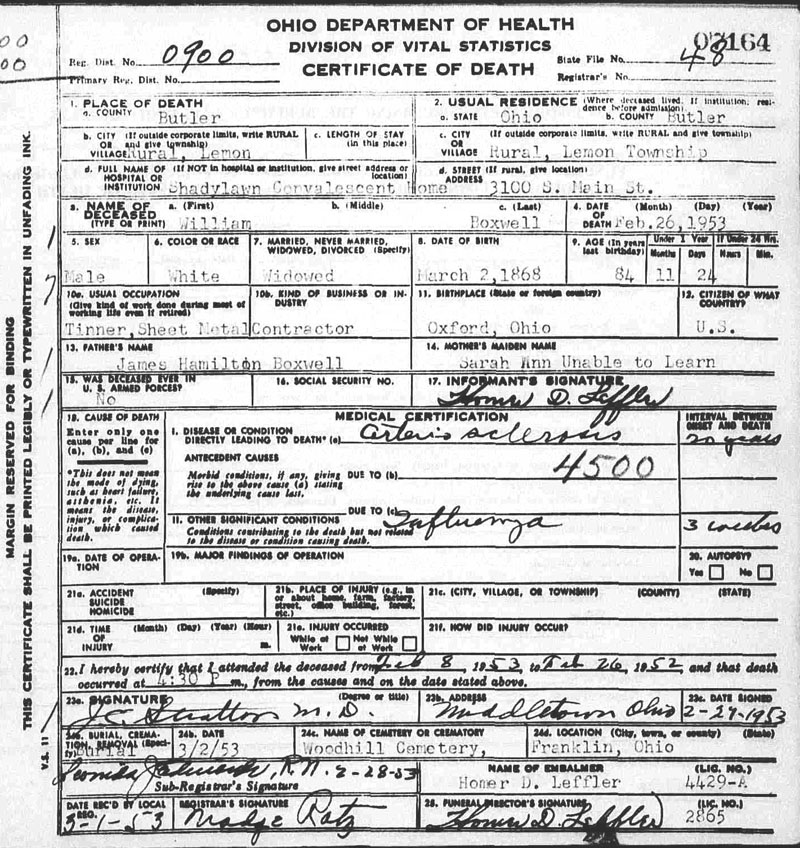 OHIO DEPARTMENT OF HEALTH
DIVISION OF VITAL STATISTICS
CERTIFICATE OF DEATH
Reg. Dist. No. 0900
Primary Reg. Dist. No.
State File No. 07164
Registrar's No. 48
00
00
MARGIN RESERVED FOR BINDING
THIS CERTIFICATE SHALL BE PRINTED LEGIBLY OR TYPEWRITTEN IN UNFADING INK.
V.S. 11
1. PLACE OF DEATH
a. COUNTY Butler
2. USUAL RESIDENCE (Where deceased lived. If institution, residence before admission).
a. STATE Ohio b. COUNTY Butler
b. CITY (If outside corporate limits, write RURAL
OR and give township)
VILLAGE Rural, Lemon
c. LENGTH OF STAY
(in this place)
c. CITY (If outside corporate limits, write RURAL and give township)
OR
VILLAGE Rural, Lemon Township
d. FULL NAME OF (If NOT in hospital or institution, give street address or location)
HOSPITAL OR
INSTITUTION Shadylawn Convalescent Home
d. STREET (If rural, give location)
ADDRESS 3100 S. Main St.
3. NAME OF DECEASED (TYPE OR PRINT)
a. (First) b. (Middle) c. (Last)
William Boxwell
4. DATE OF DEATH (Month) (Day) (Year)
Feb.26,1953
5. SEX
Male
6. COLOR OR RACE
White
7. MARRIED, NEVER MARRIED,
WIDOWED, DIVORCED (Specify)
Widowed
8. DATE OF BIRTH
March 2,1868
9. AGE (In years last birthday) Under 1 Year If Under 24 Hrs.
Months Days Hours Min.
84 11 24
10a. USUAL OCCUPATION
(Give kind of work done during most of working life even if retired)
Tinner,Sheet Metal
10b. KIND OF BUSINESS OR INDUSTRY
Contractor
11. BIRTHPLACE (State or foreign country)
Oxford, Ohio
12. CITIZEN OF WHAT COUNTRY?
U.S.
13. FATHER'S NAME
James Hamilton Boxwell
14. MOTHER'S MAIDEN NAME
Sarah Ann Unable to Learn
15. WAS DECEASED EVER IN
U. S. ARMED FORCES?
No
16. SOCIAL SECURITY NO.
17. INFORMANT'S SIGNATURE
Homer D. Leffler
18. CAUSE OF DEATH
Enter only one cause per line for (a), (b), and (c)
*This does not mean the mode of dying, such as heart failure, asthenia etc. It means the disease, injury, or complication which caused death.
MEDICAL CERTIFICATION
INTERVAL BETWEEN ONSET AND DEATH
I. DISEASE OR CONDITION
DIRECTLY LEADING TO DEATH* (a) arterio sclerosis 20 years
ANTECEDENT CAUSES
Morbid conditions, if any, giving rise to the above cause (a) stating the underlying cause last.
DUE TO (b) 4500
DUE TO (c)
II. OTHER SIGNIFICANT CONDITIONS
Conditions contributing to the death but not related to the disease or condition causing death.
Influenza 3 weeks
19a. DATE OF OPERATION
19b. MAJOR FINDINGS OF OPERATION
20. AUTOPSY?
Yes No
21a. ACCIDENT (Specify)
SUICIDE
HOMICIDE
21b. PLACE OF INJURY (e.g., in or about home, farm, factory, street, office building, forest, etc.)
21c. (CITY, VILLAGE, OR TOWNSHIP) (COUNTY) (STATE)
21d. TIME OF INJURY (Month) (Day) (Year) (Hour) m.
21e. INJURY OCCURRED
While at Work Not While at Work
21f. HOW DID INJURY OCCUR?
22. I hereby certify that I attended the deceased from Feb 8, 1953 to Feb 26, 1952, and that death
occurred at 4:30 P m., from the causes and on the date stated above.
23a. SIGNATURE (Degree or title)
J C Stratton M.D.
23b. ADDRESS
Middletown Ohio
23c. DATE SIGNED
2-27-1953
24a. BURIAL, CREMATION, REMOVAL (Specify)
Burial
24b. DATE
3/2/53
24c. NAME OF CEMETERY OR CREMATORY
Woodhill Cemetery,
24d. LOCATION (City, town, or county) (State)
Franklin, Ohio
R.N. 2-28-53
Sub-Registrar's Signature
NAME OF EMBALMER (LIC. NO.)
Homer D. Leffler 4429-A
DATE REC'D BY LOCAL REG.
3-1-53
REGISTRAR'S SIGNATURE
Madge Ratz
25. FUNERAL DIRECTOR'S SIGNATURE (LIC. NO.)
Homer D. Leffler 2865